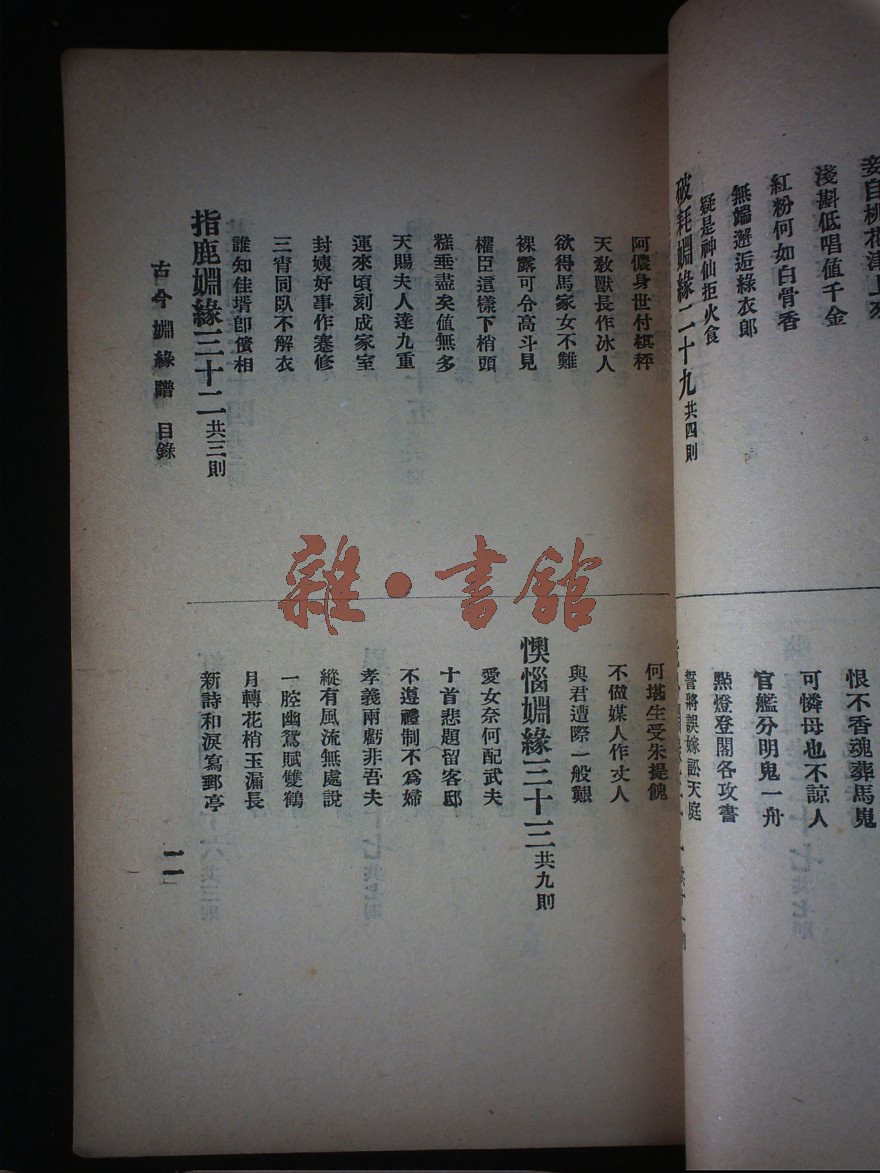 妾自桃花津上來
淺斟低唱值千金
紅粉何如白骨香
無端邂逅綠衣郎
疑是神仙拒火食
破耗婣緣二十九 共四則
恨不香魂葬馬嵬
可憐母也不諒人
官艦分明鬼一舟
㸃燈登閣各攻書
誓將誤嫁訟天庭
阿儂身世付棋枰
天敎獸長作冰人
欲得馬家女不難
裸露可令高斗見
權臣這樣下梢頭
糕垂盡矣值無多
天賜夫人達九重
運來頃刻成家室
封姨好事作蹇修
三宵同臥不解衣
誰知佳壻卽儐相
指鹿婣緣三十二 共三則
何堪生受朱提餽
不做媒人作丈人
與君遭際一般艱
懊惱婣緣三十三 共九則
愛女奈何配武夫
十首悲題留客邸
不遵禮制不爲婦
孝義兩虧非吾夫
縱有風流無處說
一腔幽鴛賦雙鶴
月轉花梢玉漏長
新詩和淚寫郵亭
古今婣緣譜 目錄
一一
雜·書館